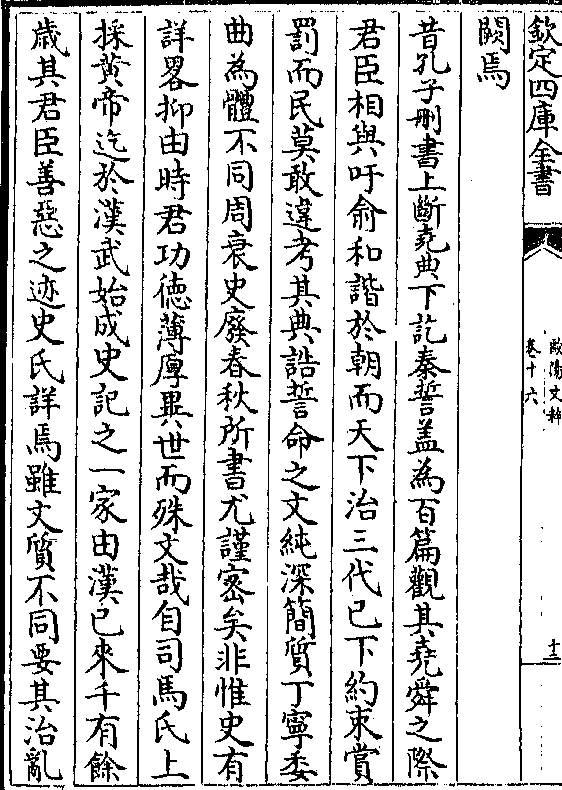 欽定四庫全書
歐陽文粹
卷十六
十二
闕焉
昔孔子刪書上斷堯典下訖秦誓盖為百篇觀其堯舜之際
君臣相與吁俞和諧於朝而天下治三代已下約束賞
罰而民莫敢違考其典誥誓命之文純深簡質丁寧委
曲為體不同周衰史廢春秋所書尤謹宻矣非惟史有
詳畧抑由時君功徳薄厚異世而殊文哉自司馬氏上
採黄帝迄於漢武始成史記之一家由漢已來千有餘
歳其君臣善惡之迹史氏詳焉雖文質不同要其治亂